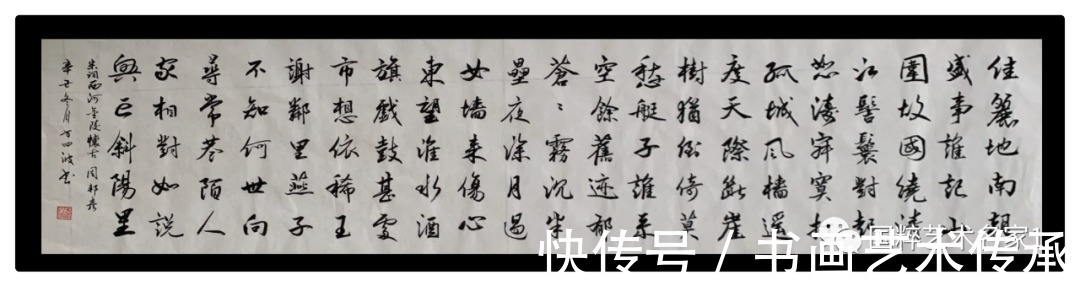 佳麗地南朝
盛事誰記山
圍故國繞清
江髻鬟對起
怒濤寂寞打
孤城風檣遥
度天際斷崖
樹猶倒倚莫
愁艇子誰系
空餘舊迹郁
蒼〻霧沉半
壘夜深月過
女墻来傷心
東望淮水酒
旗戲鼓甚處
市想依稀王
謝鄰里燕子
不知何世向
尋常巷陌人
家相對如說
興亡斜陽里
宋詞西河金陵懷古周邦彦
辛丑冬月
国粹艺术名家
快传号 / 书画艺术传承